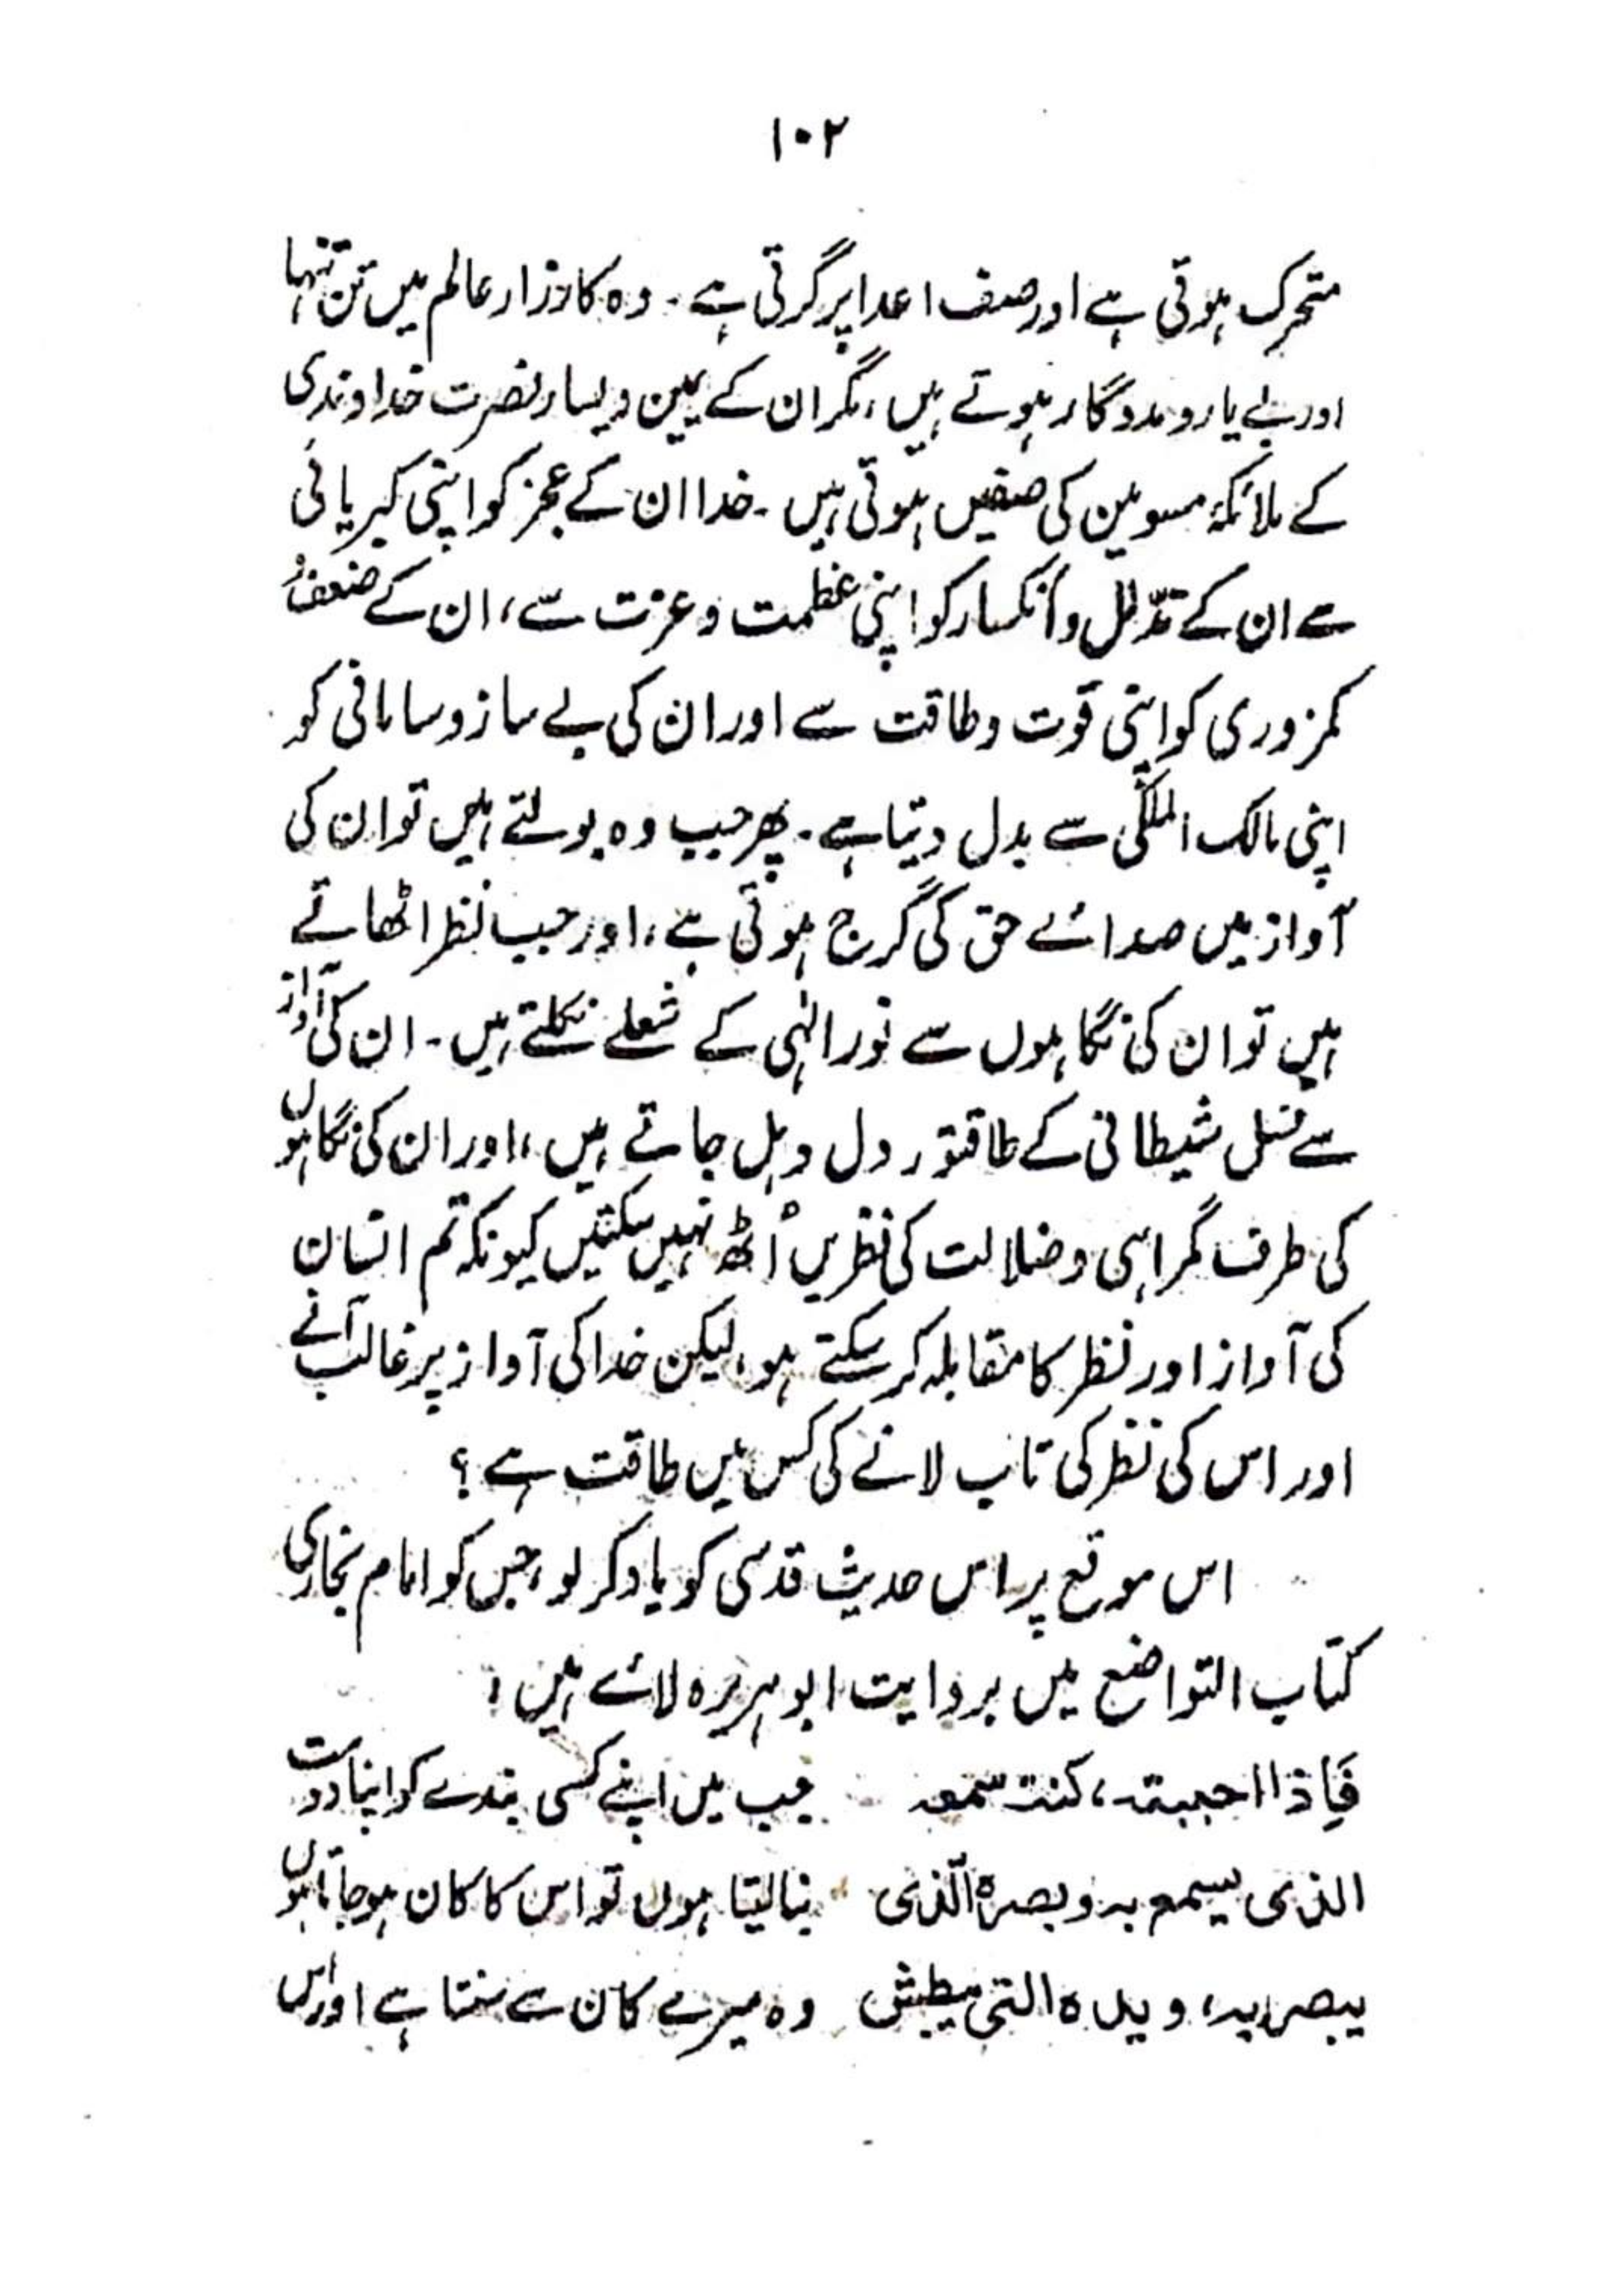 ۱۰۲
متحرک ہوتی ہے اور صف اعدا پر گرتی ہے۔ وہ کارزار عالم میں تن تنہا
اور بے یار و مددگار ہوتے ہیں، مگر ان کے یمین و یسار نصرت خداوندی
کے ملائکۂ مسومین کی صفیں ہوتی ہیں۔ خدا ان کے عجز کو اپنی کبریائی
سے ان کے تذلل و انکسار کو اپنی عظمت و عزت سے، ان کے ضعف و
کمزوری کو اپنی قوت و طاقت سے اور ان کی بے ساز و سامانی کو
اپنی مالک الملکی سے بدل دیتا ہے۔ پھر جب وہ بولتے ہیں تو ان کی
آواز میں صدائے حق کی گرج ہوتی ہے، اور جب نظر اٹھاتے
ہیں تو ان کی نگاہوں سے نور الٰہی کے شعلے نکلتے ہیں۔ ان کی آواز
سے نسل شیطانی کے طاقتور دل دہل جاتے ہیں، اور ان کی نگاہوں
کی طرف گمراہی و ضلالت کی نظریں اُٹھ نہیں سکتیں کیونکہ تم انسان
کی آواز اور نظر کا مقابلہ کر سکتے ہو، لیکن خدا کی آواز پر غالب آنے
اور اس کی نظر کی تاب لانے کی کس میں طاقت ہے؟
اس موقع پر اس حدیث قدسی کو یاد کر لو، جس کو امام بخاری
کتاب التواضع میں بروایت ابو ہریرہ لائے ہیں:
فَاِذا احببتہ، کنت سمعہ جب میں اپنے کسی بندے کو اپنا دوست
الذی یسمع بہ وبصرہ الّذی بنا لیتا ہوں تو اس کا کان ہو جاتا ہوں
یبصر بہ، ویدہ التی یبطش وہ میرے کان سے سنتا ہے اور اس